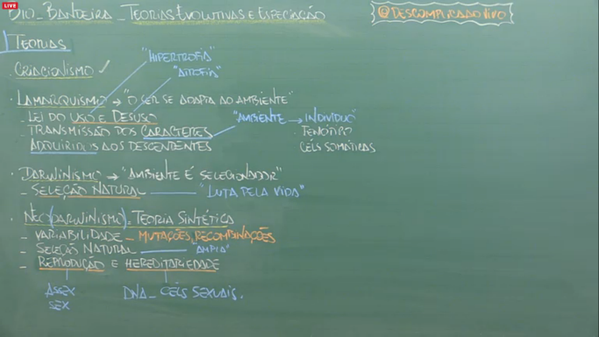 LIVE
BIO_BANDEIRA_TEORIAS EVOLUTIVAS E ESPECIAÇÃO
@DESCOMPLICAAOVIVO
TEORIAS
"HIPERTROFIA"
"ATROFIA"
· CRIACIONISMO ✓
· LAMARQUISMO → "O SER SE ADAPTA AO AMBIENTE"
- LEI DO USO E DESUSO
- TRANSMISSÃO DOS CARACTERES
ADQUIRIDOS AOS DESCENDENTES
"AMBIENTE → INDIVÍDUO"
FENÓTIPO
CÉLS SOMÁTICAS
· DARWINISMO → "AMBIENTE É SELECIONADOR"
- SELEÇÃO NATURAL — "LUTA PELA VIDA"
· NEO(DARWINISMO) = TEORIA SINTÉTICA
- VARIABILIDADE - MUTAÇÕES, RECOMBINAÇÕES
- SELEÇÃO NATURAL — AMBIA
- REPRODUÇÃO E HEREDITARIEDADE
ASSEX
SEX
DNA - CÉLS SEXUAIS.